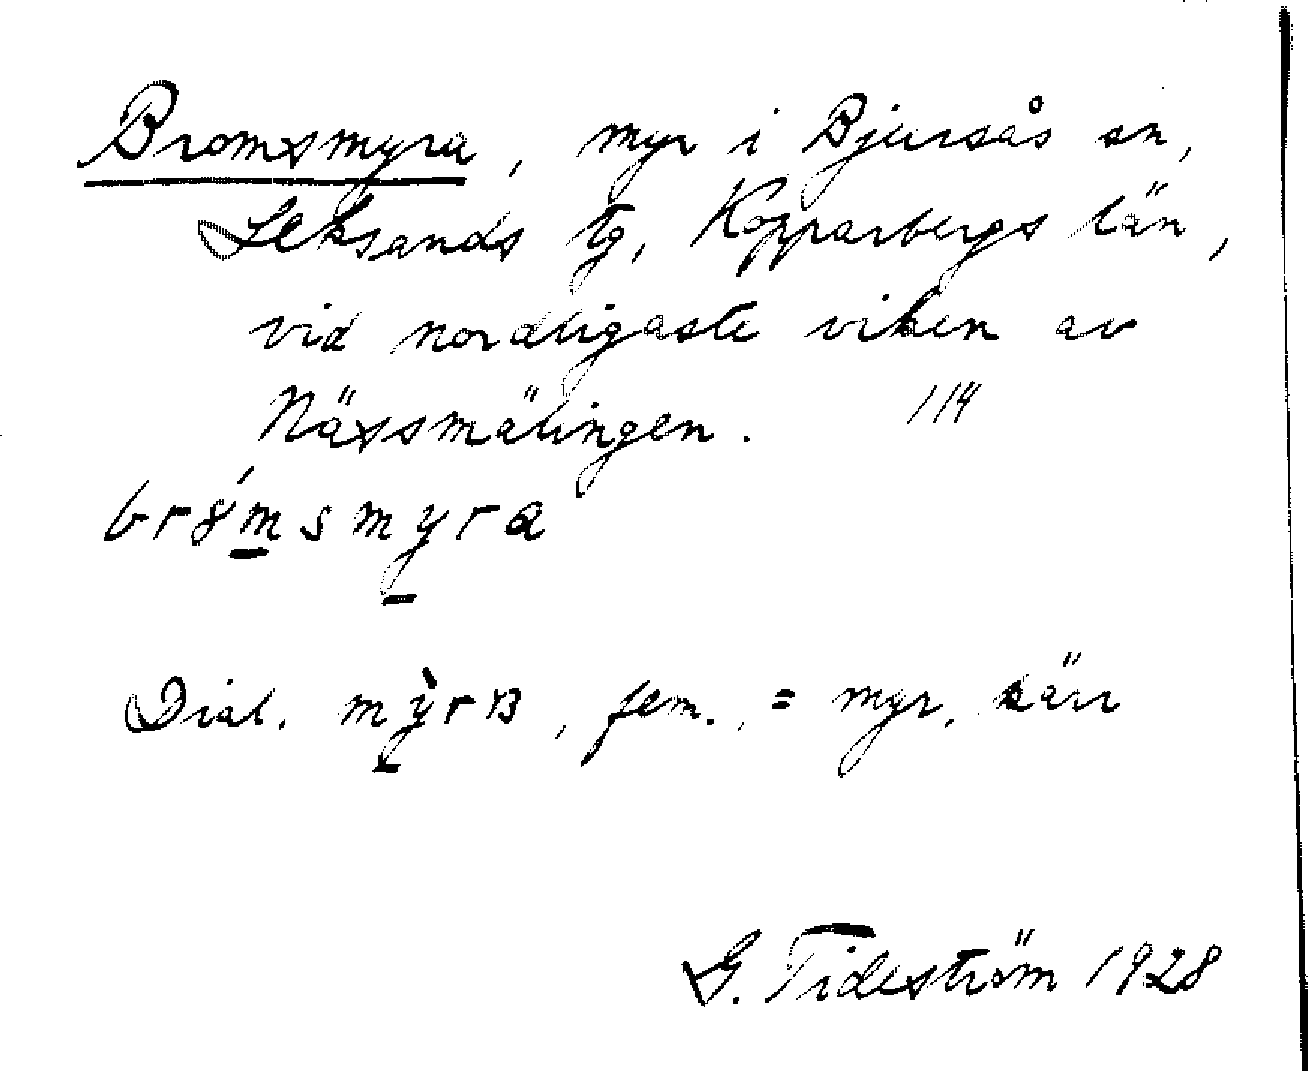 Bromsmyra, myr i Bjursås sn,
Leksands tg, Kopparbergs län,
vid nordligaste viken av
Nässmälingen. 114
br8́msmyra
Dial. mỳrв, fem., = myr, kärr
G. Tideström 1928